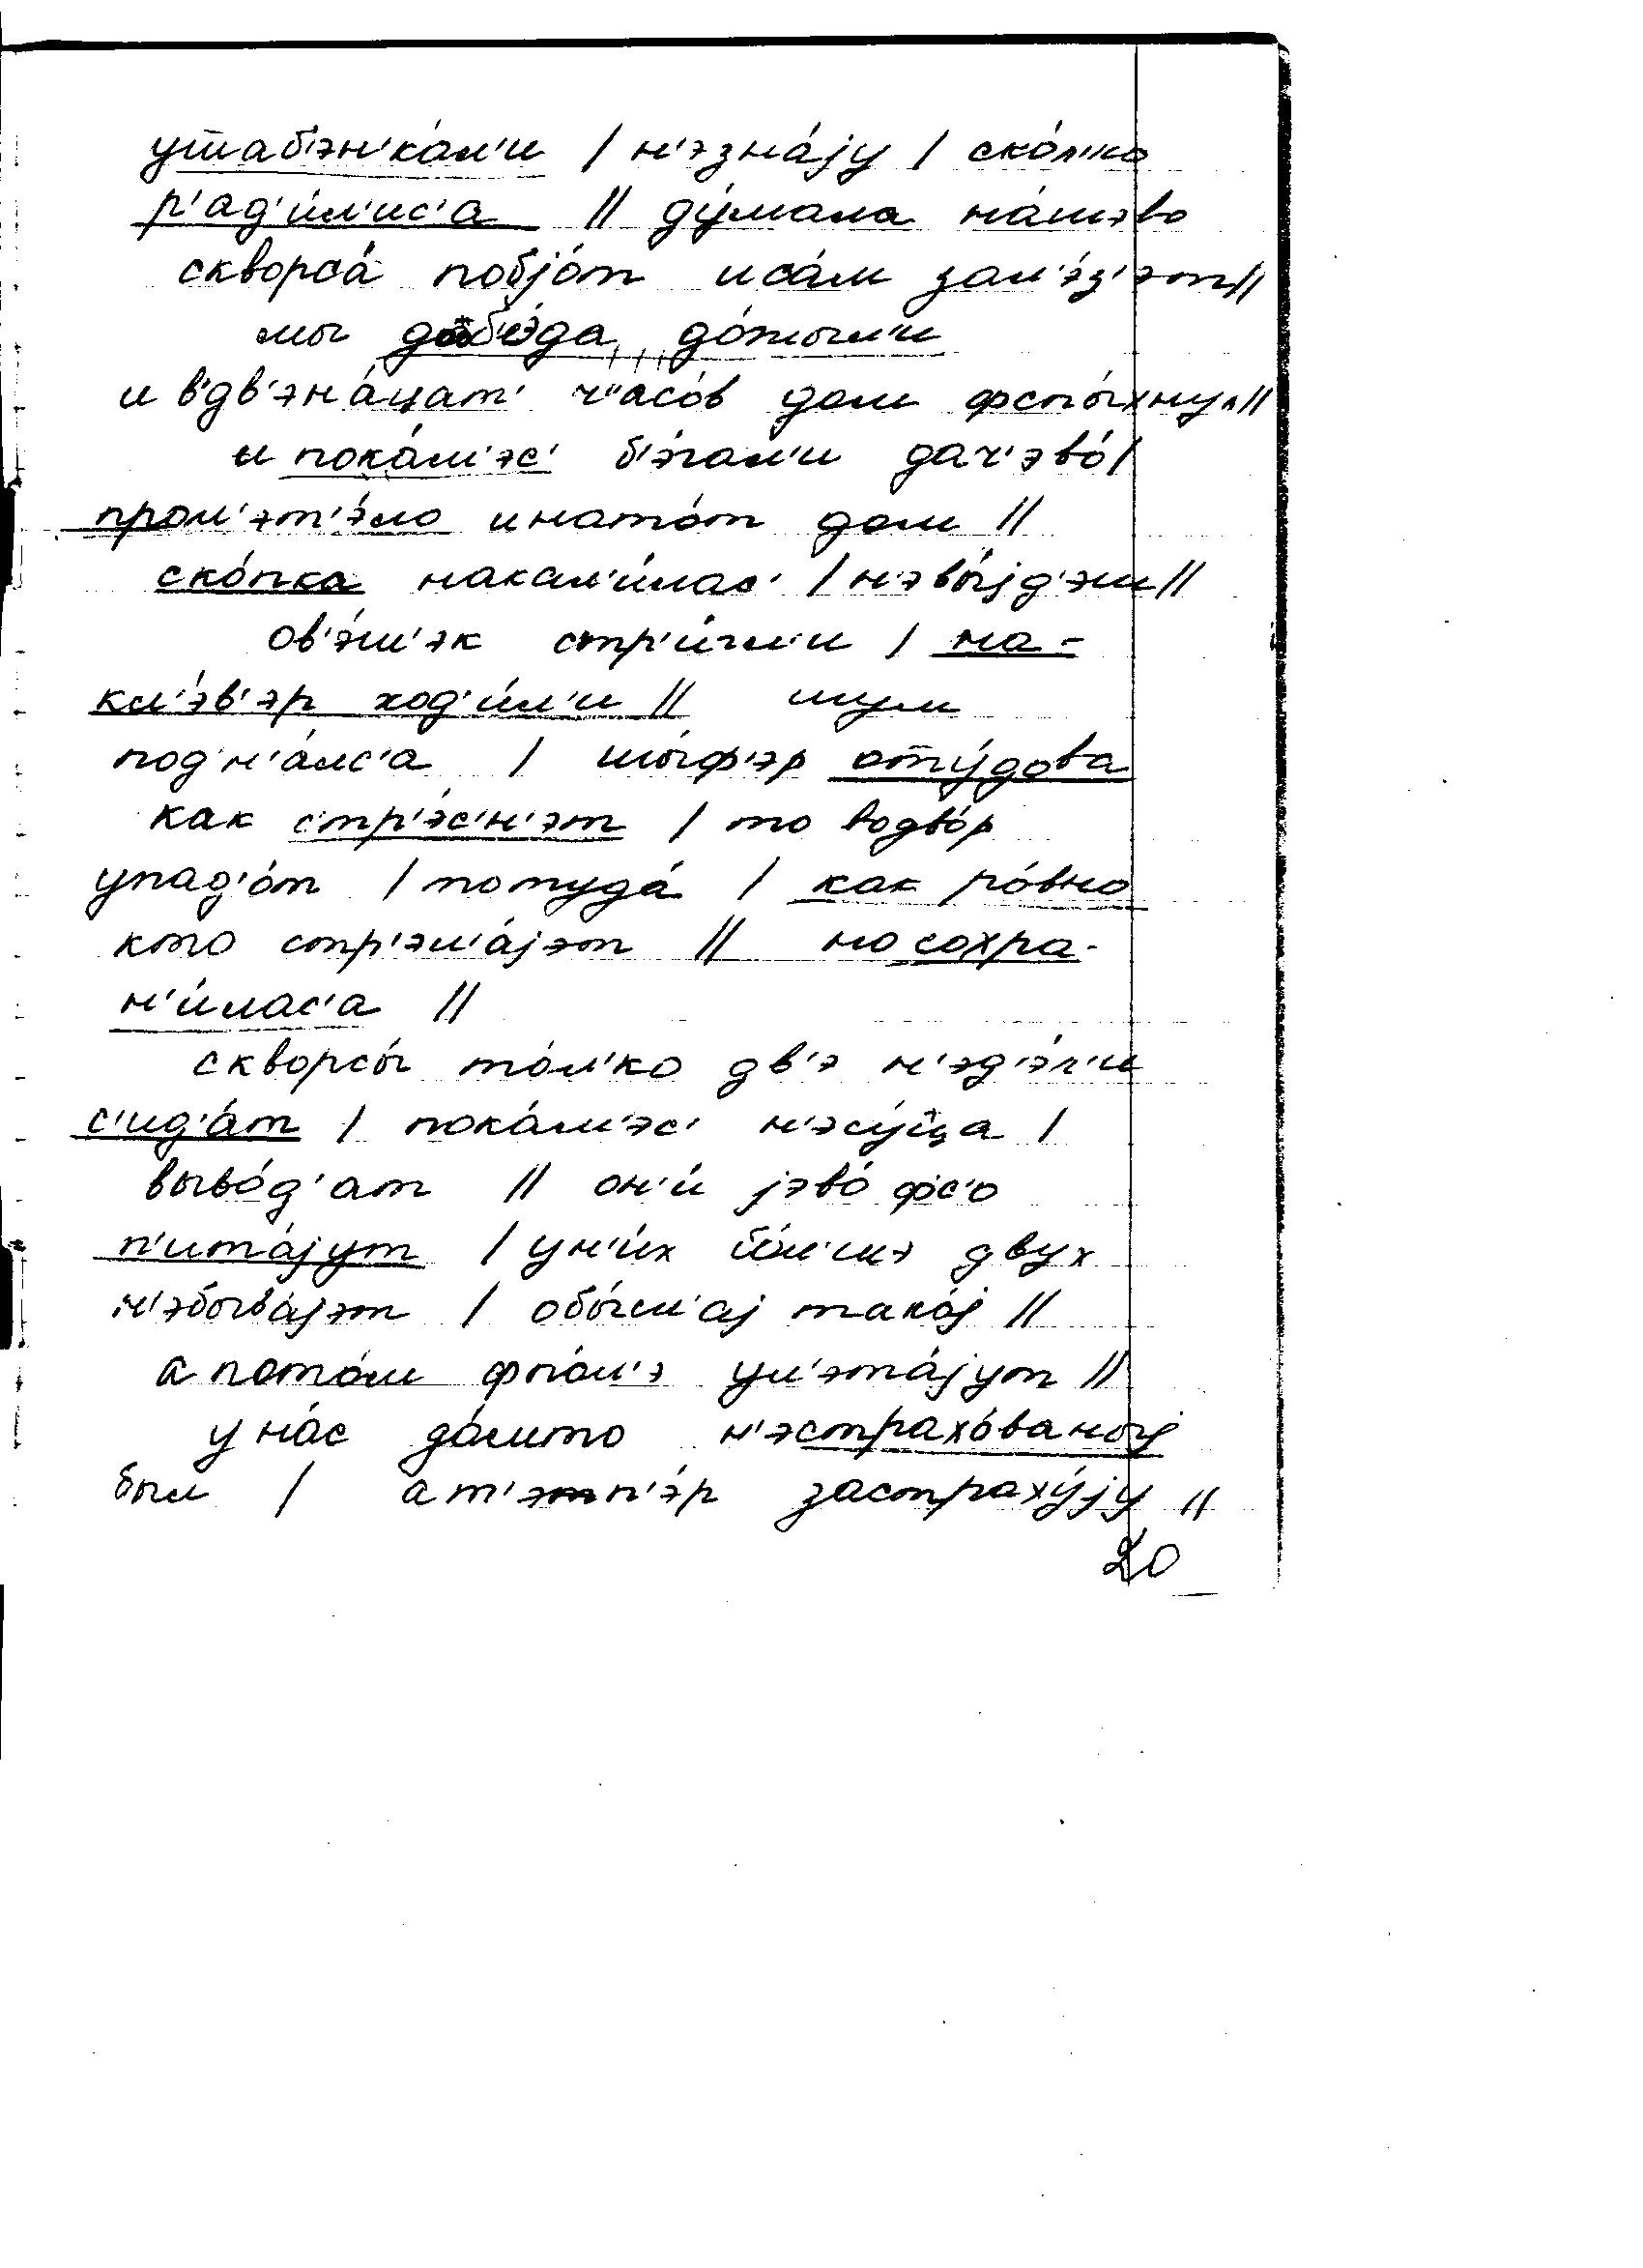 ут̅аб'эн'ка́л'и / н'эзна́jу / ско́л'ко
р'ад'и́л'ис'а // ду́мала на́шэво
скворса́ побjо́т и са́м зал'э́з'эт //
мы доб'э́да до́жыл'и
и в'дв'эна́цат' ч'асо́в дом фспы́хнул //
и пока́м'эс' б'э́гал'и дач'эво́ /
прол'эт'э́ло инато́т дом //
ско́пка накал'и́лас' / н'эвы́jд'эш //
ов'э́ч'эк стр'и́гл'и / на-
кл'э́в'эр ход'и́л'и // шум
под'н'а́лс'а / шы́ф'эр от̅у́дова
как стр'э́с'н'эт / то водво́р
упад'о́т / потуда́ / как ро́вно
кто стр'эл'а́jэт // но сохра-
н'и́лас'а //
скворсы́ то́л'ко дв'э н'эд'э́л'и
с'ид'а́т / пока́м'эс' н'эсу́т̅ца /
выво́д'ат // он'и́ jэво́ фс'о
п'ита́jут / ун'и́х бо́л'шэ двух
н'эбыва́jэт / обы́ч'аj тако́j //
а пото́м фпо́л'э ул'эта́jут //
у на́с до́мто н'эстрахо́ваныj
был / ат'эп'э́р застраху́jу //
20